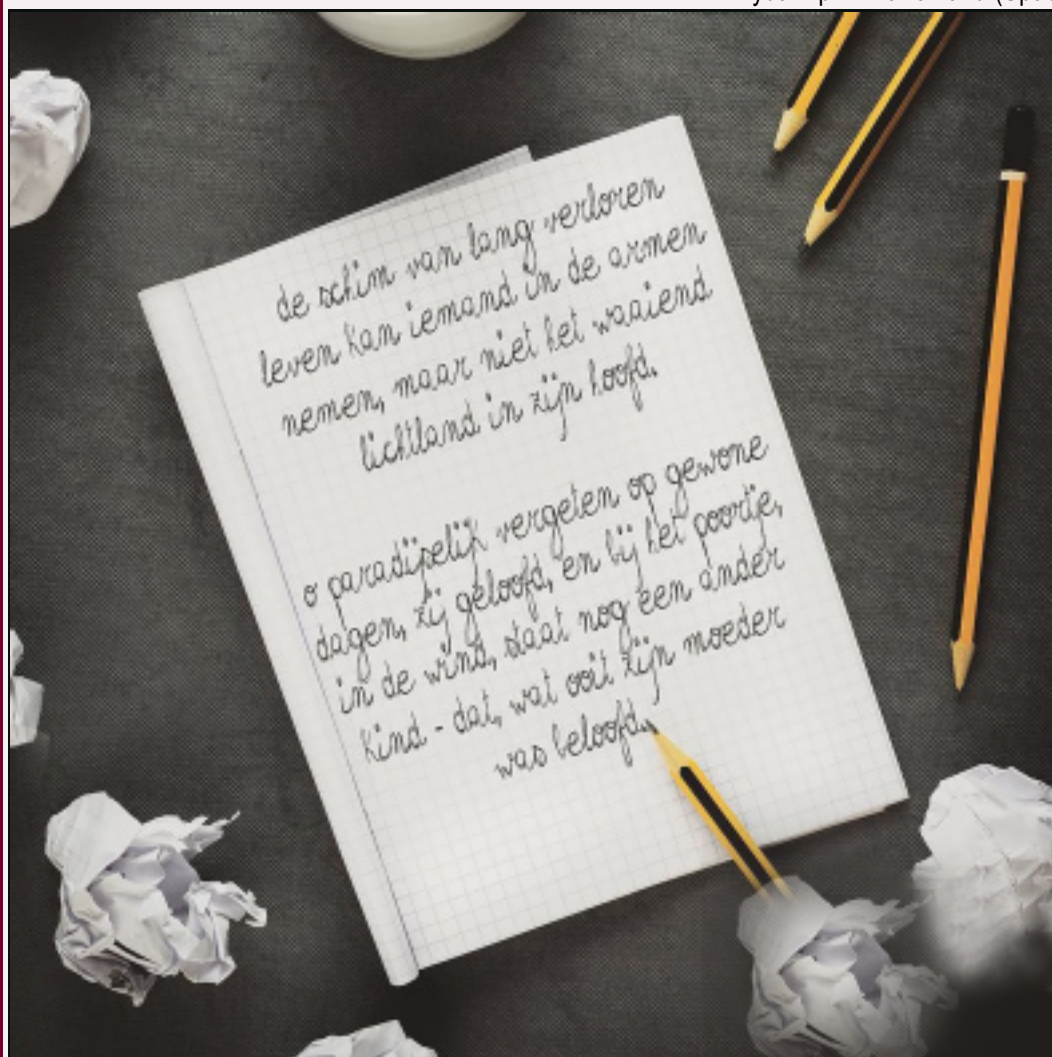 de schim van lang verloren
leven kan iemand in de armen
nemen, maar niet het waaiend
lichtland in zijn hoofd.
o paradijselijk vergeten op gewone
dagen, zij geloofd, en bij het poortje,
in de wind, staat nog een ander
kind - dat, wat ooit zijn moeder
was beloofd.